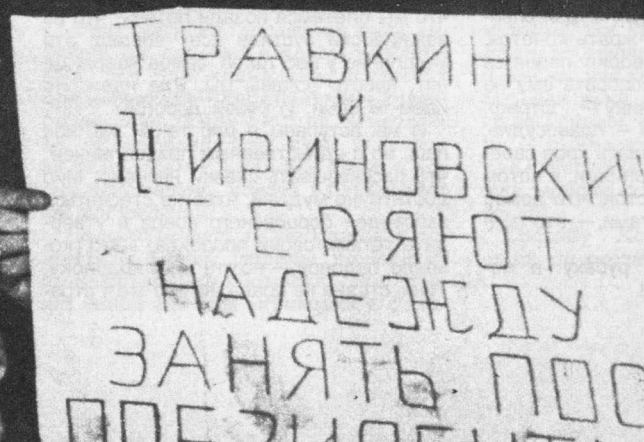 ТРАВКИН
И
ЖИРИНОВСКИЙ
ТЕРЯЮТ
НАДЕЖДУ
ЗАНЯТЬ ПОС
ПРЕЗИДЕНТ